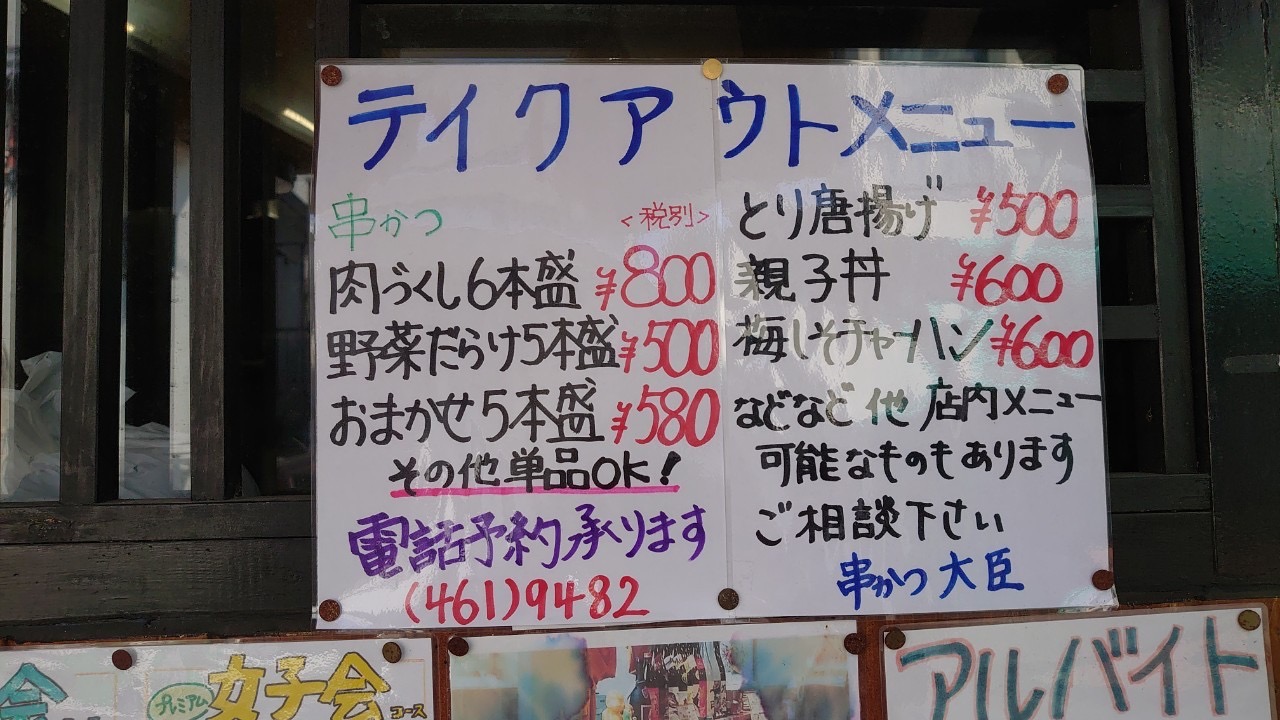 テイクアウトメニュー
串かつ <税別>
肉づくし6本盛 ¥800
野菜だらけ5本盛 ¥500
おまかせ5本盛 ¥580
その他単品OK!
電話予約承ります
(461)9482
とり唐揚げ ¥500
親子丼 ¥600
梅しそチャーハン ¥600
などなど他店内メニュー
可能なものもあります
ご相談下さい
串かつ大臣
会
プレミアム
女子会
コース
アルバイト